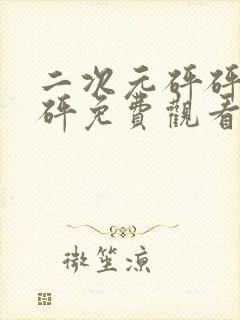 二次元砰砰
砰免費觀看
微笙凉